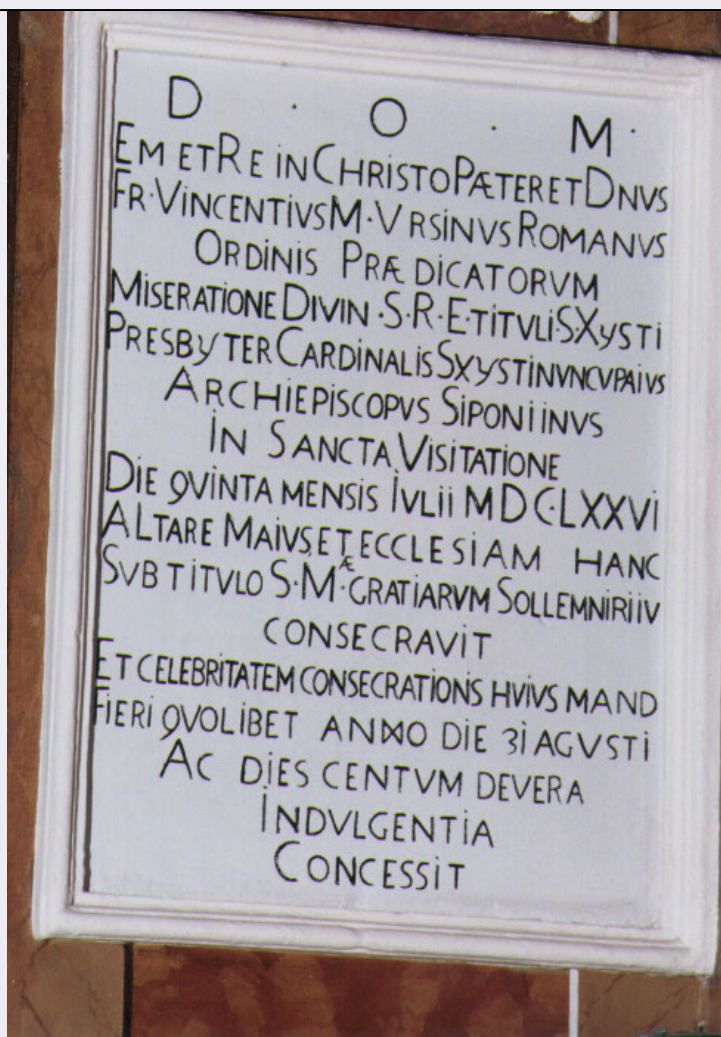 D · O · M ·
EM ET RE IN CHRISTO PÆTER ET DNVS
FR · VINCENTIVS M · VRSINVS ROMANVS
ORDINIS PRÆDICATORVM
MISERATIONE DIVIN · S · R · E · TITVLI · S XYSTI
PRESBYTER CARDINALIS S XYSTI NVNCVPAIVS
ARCHIEPISCOPVS SIPONIINVS
IN SANCTA VISITATIONE
DIE QVINTA MENSIS IVLII MDC·LXXVI
ALTARE MAIVS, ET ECCLESIAM HANC
SVB TITVLO S · MÆ · GRATIARVM SOLLEMNI RIIV
CONSECRAVIT
ET CELEBRITATEM CONSECRATIONS HVIVS MAND
FIERI QVOLIBET ANNO DIE 31 AGVSTI
AC DIES CENTVM DE VERA
INDVLGENTIA
CONCESSIT